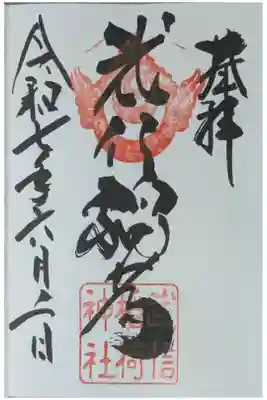 奉拝
武信稲荷
令和七年六月二日
武信
稲荷
神社